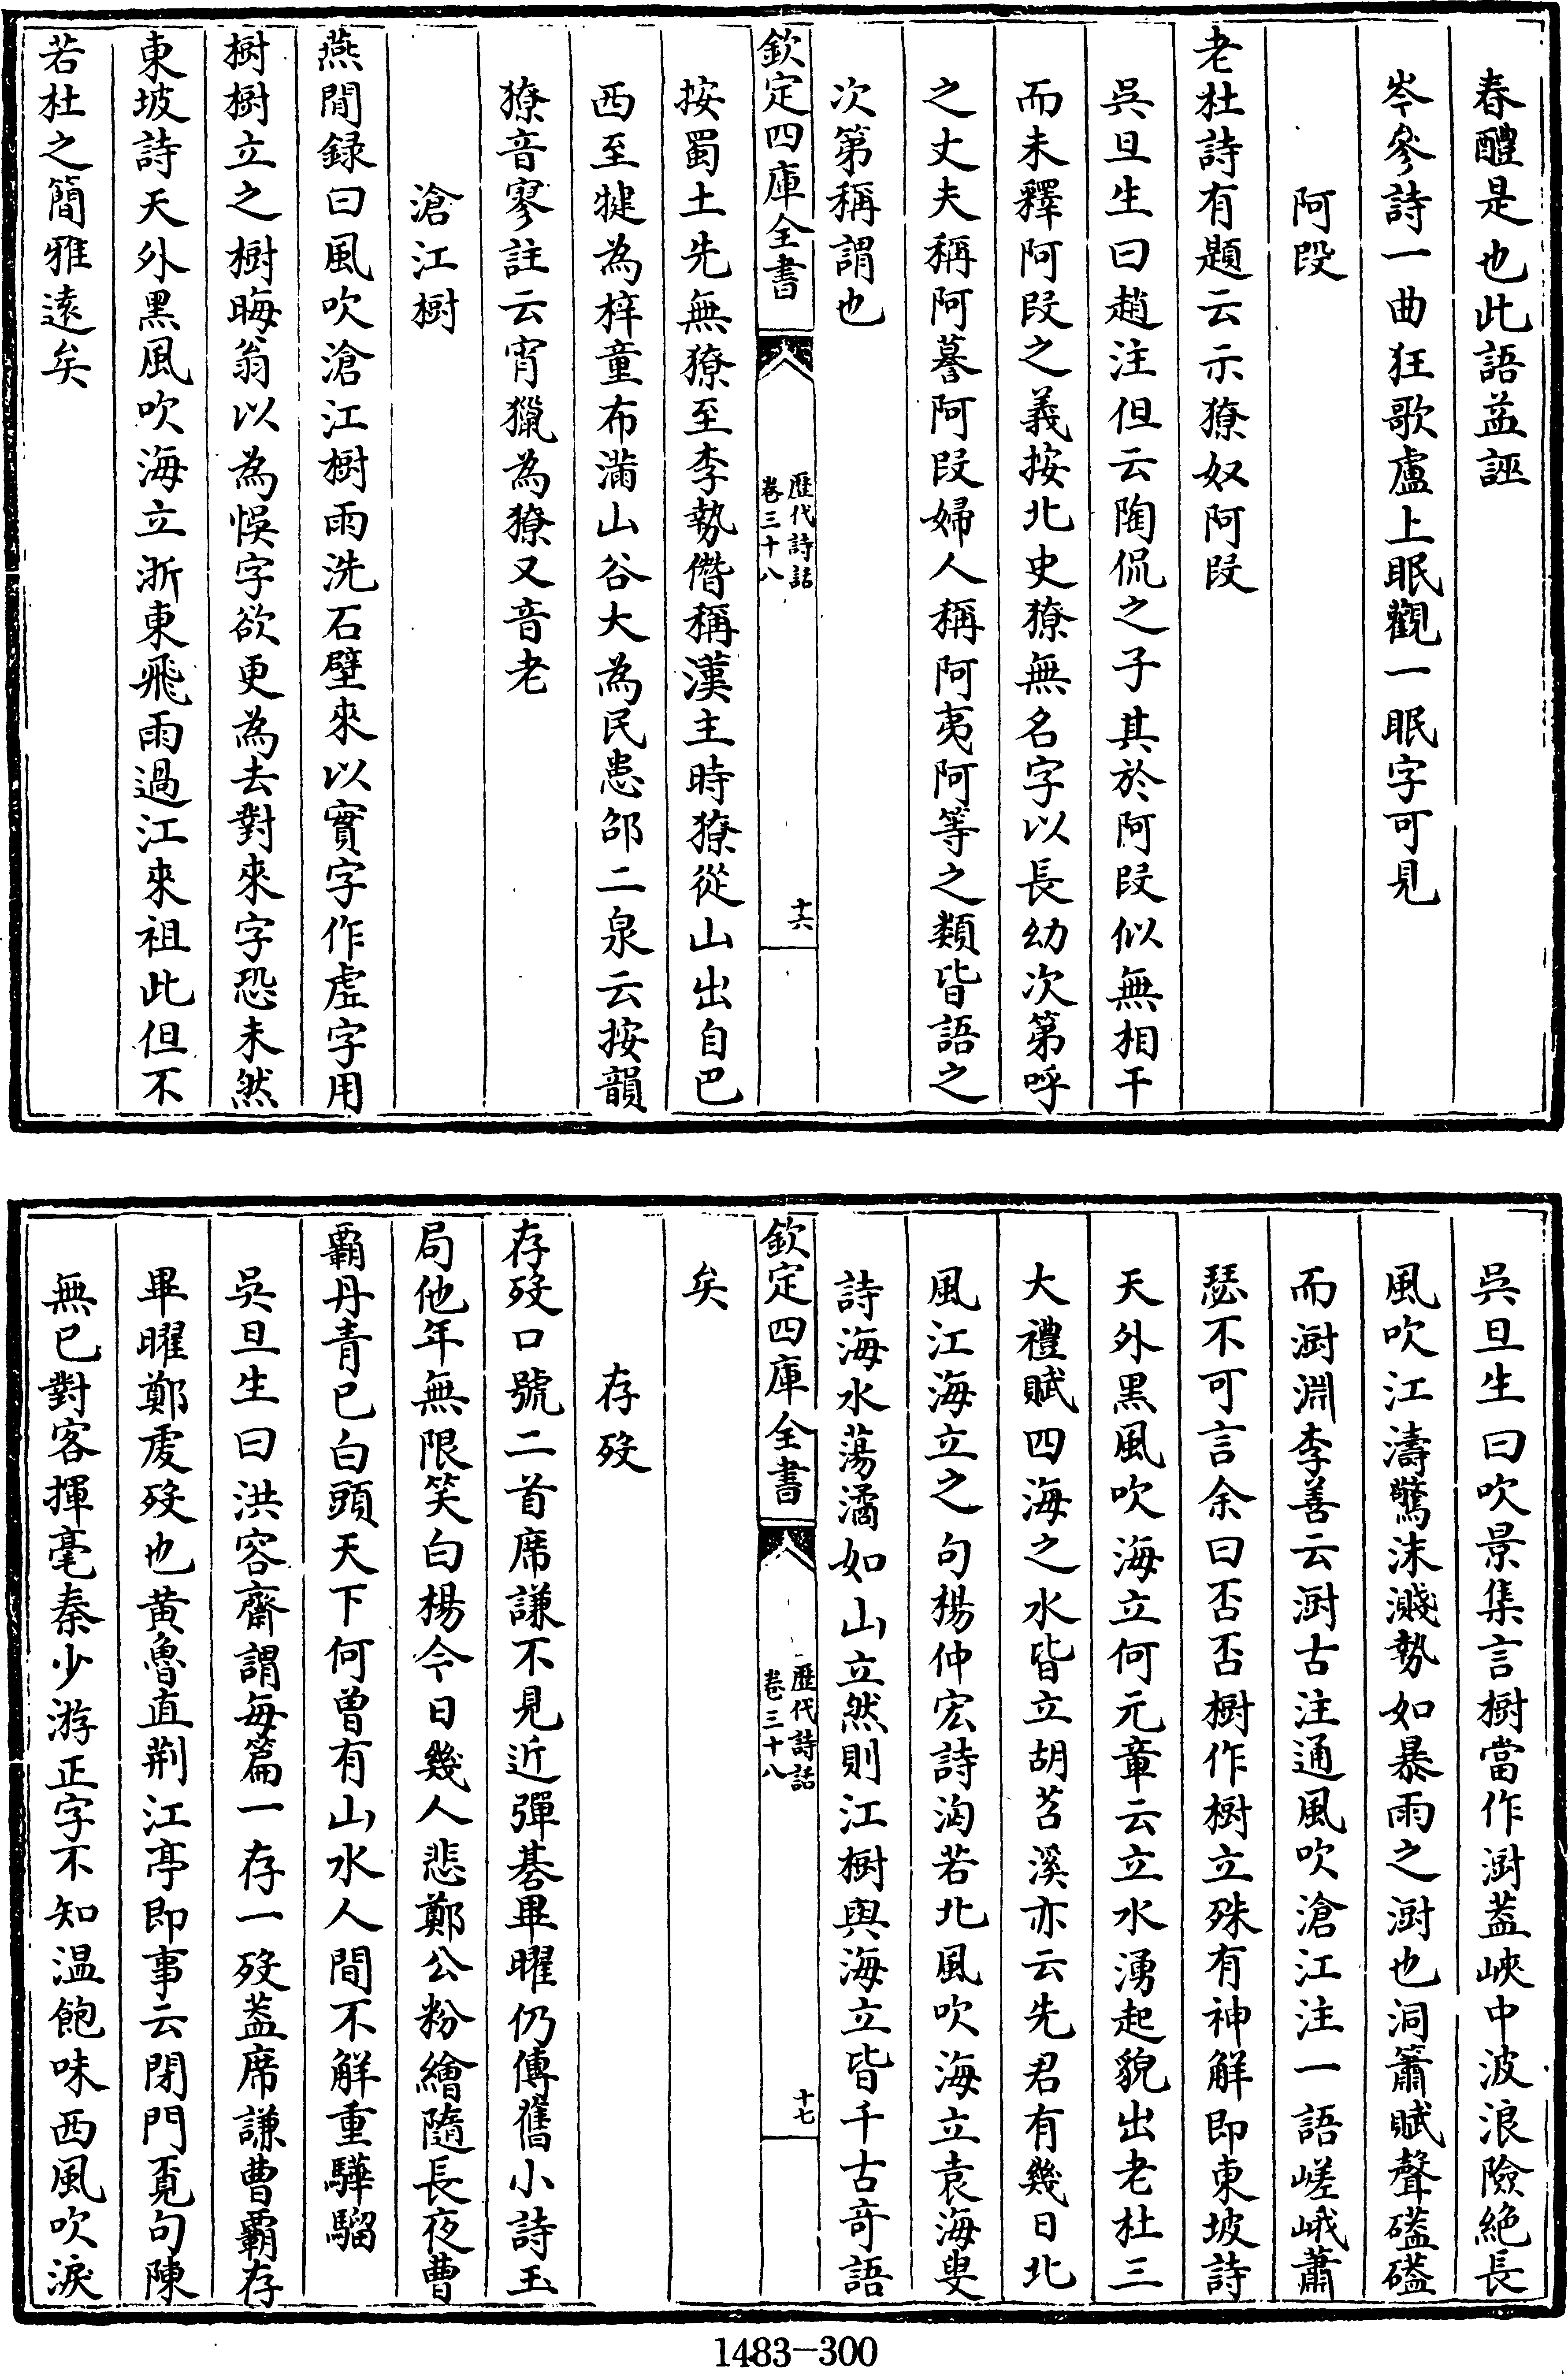 春醴是也此語葢誣
岑參詩一曲狂歌盧上眠觀一眠字可見
阿段
老杜詩有題云示獠奴阿段
吳旦生曰趙注但云陶侃之子其於阿段似無相干
而未釋阿段之義按北史獠無名字以長幼次第呼
之丈夫稱阿謩阿段婦人稱阿夷阿等之類皆語之
次第稱謂也
欽定四庫全書
歷代詩話
卷三十八
十六
按蜀土先無獠至李勢僭稱漢主時獠從山出自巴
西至犍為梓童布滿山谷大為民患邵二泉云按韻
獠音寥註云宵獵為獠又音老
滄江樹
燕閒録曰風吹滄江樹雨洗石壁來以實字作虛字用
樹樹立之樹晦翁以為悞字欲更為去對來字恐未然
東坡詩天外黑風吹海立浙東飛雨過江來祖此但不
若杜之簡雅遠矣
吳旦生曰吹景集言樹當作澍葢峽中波浪險絶長
風吹江濤驚沫濺勢如暴雨之澍也洞簫賦聲礚礚
而澍淵李善云澍古注通風吹滄江注一語嵯峨蕭
瑟不可言余曰否否樹作樹立殊有神解即東坡詩
天外黑風吹海立何元章云立水湧起貌出老杜三
大禮賦四海之水皆立胡苕溪亦云先君有幾日北
風江海立之句楊仲宏詩洶若北風吹海立袁海叟
詩海水蕩潏如山立然則江樹與海立皆千古竒語
欽定四庫全書
歷代詩話
卷三十八
十七
矣
存歿
存歿口號二首席謙不見近彈碁畢曜仍傳舊小詩玉
局他年無限笑白楊今日幾人悲鄭公粉繪隨長夜曹
霸丹青已白頭天下何曾有山水人間不解重驊騮
吳旦生曰洪容齋謂每篇一存一歿葢席謙曹霸存
畢曜鄭虔歿也黄魯直荆江亭即事云閉門覓句陳
無已對客揮毫秦少游正字不知温飽味西風吹淚
1483-300